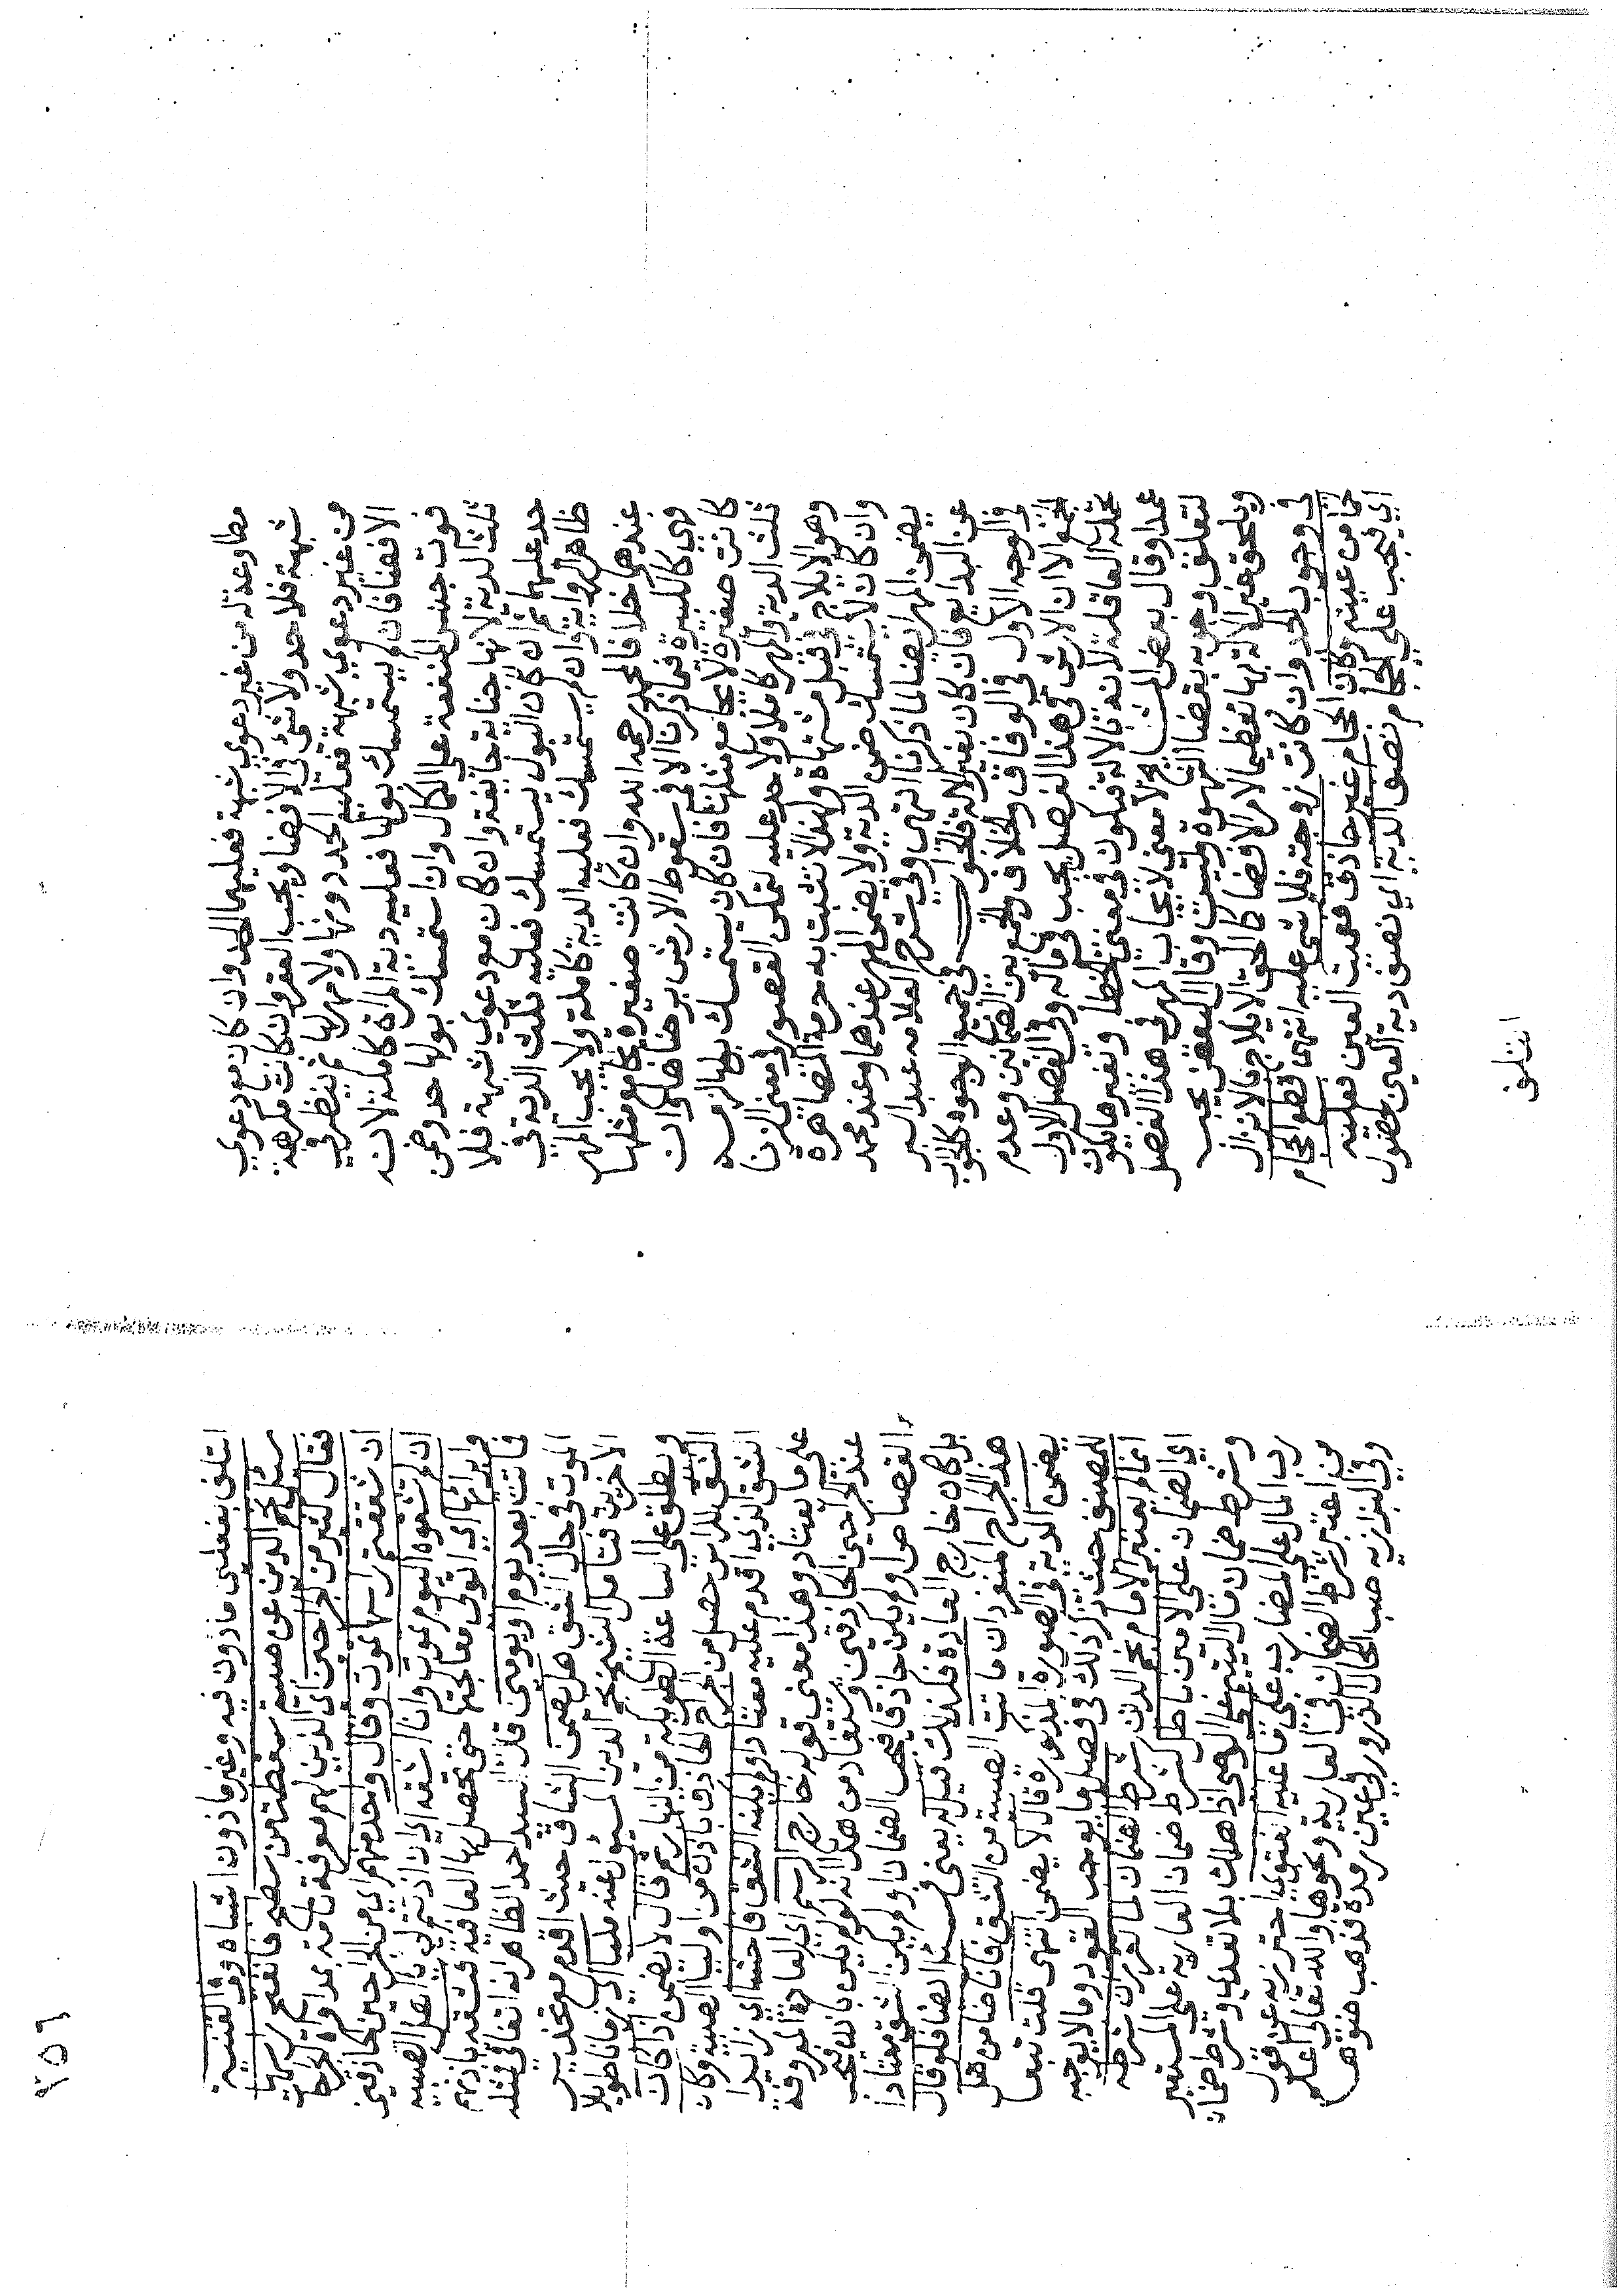 مطاوعة له من غير دعوي شبهة فعليهما الحد وان كان مع دعوي
شبهة فلا حد ولا شئ في الافضا ويجب العقر وان كانت مكرهة
من غير دعوي شبهة فعليه الحد دونها ولا مهر لها ثم ينظر في
الافضا فان لم يستمسك بولها فعليه دية المراة كاملة لانه
فوت جنس المنفعة علي الكمال وان استمسك بولها حد وضمن
ثلث الدية لانها جناية جائفة وان كان مع دعوي شبهة فلا
حد عليهما ثم ان كان البول يستمسك فعليه ثلث الدية في
ظاهر الرواية وان لم يستمسك فعليه الدية كاملة ولا يجب المهر
عندهما خلافا لمحمد رحمه الله وان كانت صغيرة يجامع مثلها
فهي كالكبيرة فيما ذكرنا الا في سقوط الارش برضاها وان
كانت صغيرة لا يجامع مثلها فان كان يستمسك بولها لزمه
ثلث الدية والمهر كاملا ولا حد عليه لتمكن القصور في معنى الزنا
وهو الايلاج في قبل مشتهاة ولهذا لا تثبت به حرمة المصاهرة
وان كان لا يستمسك ضمن الدية ولا يضمن المهر عندهما وعند محمد
يضمن المهر ايضا لما ذكرنا انتهى وفي شرح العلامه عبد البر
عن البدايع فان كان بغير الة فالجواب في جميع الوجوه كالجواب
في الوجه الاول في الوفاق والخلاف والجمع بين الضمانين وعدم
الجمع الا ان الارش في هذا الفصل يجب في ماله وفي الفصل الاول
تحمله العاقلة لانه بالالة فيكون في معني الخطا وبغيرها يكون
عمدا وقال بعض المشايخ لا معني لايجاب المهر في هذا الفصل
لتعلق وجوبه بقضا الشهوة وليست وقال البعض يجب
ويلحق غير الالة بها تعظيما لامر الافضا كما الحق الايلاج بالانزال
في وجوب الحد وان كانت زوجته فلا شئ عليه انتهى قطع الحجام
لحما من عينه وكان الحجام غير حاذق فعميت العين فعليه
اي فيجب علي الحجام نصف الدية اي نصف دية العمى لحصول
اتلف
٢٥٦
اتلف بفعلين ماذون فيه وغير ماذون اشباه وفي القنية
سئل نجم الدين عن صبية سقطت من سطح فانفتح راسها
فقال كثير من الجراحين اي الذين لهم معرفة تامة بمداواة الجراح
ان شققتم راسها تموت وقال واحد منهم اي من الجراحين الحاذقين
ان لم تشقوه اليوم تموت وانا اشقه اي ان اذنتم لي يا اهل الصبية
وابرائها اي اتولى معالجتها حتى تحصل لها العافية فشقه باذنهم
فماتت بعد يوم او يومين قال السيد احمد الظاهر انه اتفاقي فمثله
الموت في حال الشق هل يضمن الشاق حيث اقدم مع تحذير
الاخرين فتامل الشيخ نجم الدين المسؤل عنه مليا اي زمانا طويلا
ويطلق علي الساعة الطويلة من النهار ثم قال لا يضمن اذا كان
الشق للراس حصل من الجراح الحاذق باذن من اوليا الصبية وكان
الشق الذي اقدم عليه معتادا ولم يكنه الشق فاحشا اي زايدا
على ما يعتاد وهذا معنى قوله خارج الرسم اي العادة المعروفة
عند الجراحين الحاذقين ويستفاد من هذا انه لو لم يكن باذن فتجب
القصاص او لم يكن حاذقا فيجب الضمان او لم يكن الشق معتادا
بل كان خارج العادة فكذلك قيل له يعني في الضمان فلو قال
هذا الجراح المنفرد ان ماتت الصبية من الشق فانا ضامن هل
يضمن الدية في الصورة المذكورة قال لا يضمن انتهى قلت تبعا
للمصنف حيث ذكر ذلك في فصل ما يوجب القود وما لا يوجبه
انما لم يعتبر الامام نجم الدين شرط الضمان لما تقرر ان شرطه
اي الضمان علي الامين باطل كشرط ضمان العارية علي المستعير
وشرط ضمان مال اليتيم علي الوصي اذا هلك بلا تعد وشرط ضمان
رب المال علي المضارب علي ما عليه الفتوي احترز به عن قول
من اعتبر شرط الضمان في العارية ونحوها والله تعالي اعلم
وفي البزازيه صب الكحال الذرور في عين رمدة فذهب ضوها